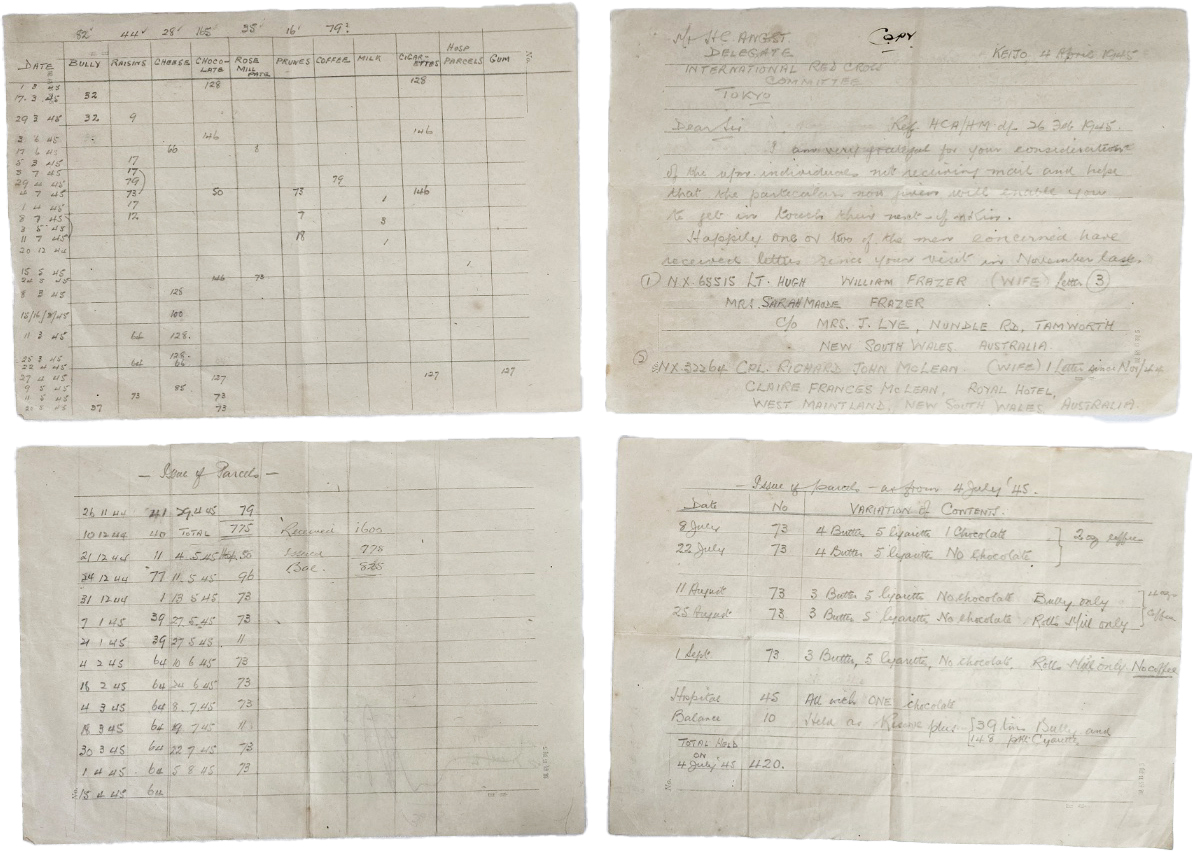 82 44 28 35 16 79
DATE BULLY RAISINS CHEESE CHOCO-LATE ROSE MILL PATE PRUNES COFFEE MILK CIGAR-ETTES HOSP PARCELS GUM
1 3 45 128 128
17. 3 45 32
29 3 45 32 9
3 6 45 146 146
17 6 45 60 8
5 3 45 17
3 7 45 17
29 4 45 79 79
4 7 45 73 50 73 1 146
1 4 45 17
8 7 45 12 7 3
3 5 45
11 7 45 18 1
20 12 44
1
15 5 45 146 73
8 3 45 128
15/16/3/45 100
11 3 45 64 128.
25 3 45 128.
22 4 45 64
27 4 45 127 127 127
9 5 45 85
11 5 45 73 73
37 73
Mr HC ANGST COPY
DELEGATE KEIJO 4 April 1945
INTERNATIONAL RED CROSS
COMMITTEE
TOKYO
Dear Sir Ref. HCA/HM of 26 Feb 1945.
I am very grateful for your consideration
of the individuals not receiving mail and hope
that the particulars now given will enable you
to get in touch their next-of-kin.
Happily one or two of the men concerned have
received letters since your visit in November last.
(1) NX.65515 LT. HUGH WILLIAM FRAZER (WIFE) letter (3)
MRS. SARAH MAUDE FRAZER
C/o MRS. J. LYE, NUNDLE RD, TAMWORTH
NEW SOUTH WALES AUSTRALIA.
(2) NX.32264 CPL. RICHARD JOHN McLEAN. (WIFE) 1 letter since Nov/44
CLAIRE FRANCES McLEAN, ROYAL HOTEL,
WEST MAINTLAND, NEW SOUTH WALES AUSTRALIA.
— Issue of Parcels —
26 11 44 41 29.4.45 79
10 12 44 40 TOTAL 775 Received 1600
21 12 44 11 4.5.45 50 Issued 775
24 12 44 77 11.5.45 96 Bal. 825
31 12 44 1 13 5 45 73
7 1 45 39 27.5.45 73
21 1 45 39 27 5 45 11
4 2 45 64 10 6 45 73
18 2 45 64 24 6.45 73
4 3 45 64 8.7.45 73
18 3 45 64 7 45 11
30 3 45 64 22 7 45 73
1 4 45 64 5 8 45 73
15 4 45 64
— Issue of parcels — as from 4 July '45.
Date No VARIATION of CONTENTS.
8 July 73 4 Butter 5 Cigarette 1 Chocolate 2 oz coffee
22 July 73 4 Butter 5 Cigarette No chocolate
11 August 73 3 Butter 5 Cigarette No chocolate Bully only
25 August 73 3 Butter 5 Cigarette No chocolate Rose Mill only
1 Sept 73 3 Butter, 5 Cigarette, No chocolate. Rose Mill only No coffee
Hospital 45 All with ONE chocolate
Balance 10 Held as Reserve plus 39 tins Bully and
148 pkts Cigarette
TOTAL HELD
ON
4 July '45 420.
No